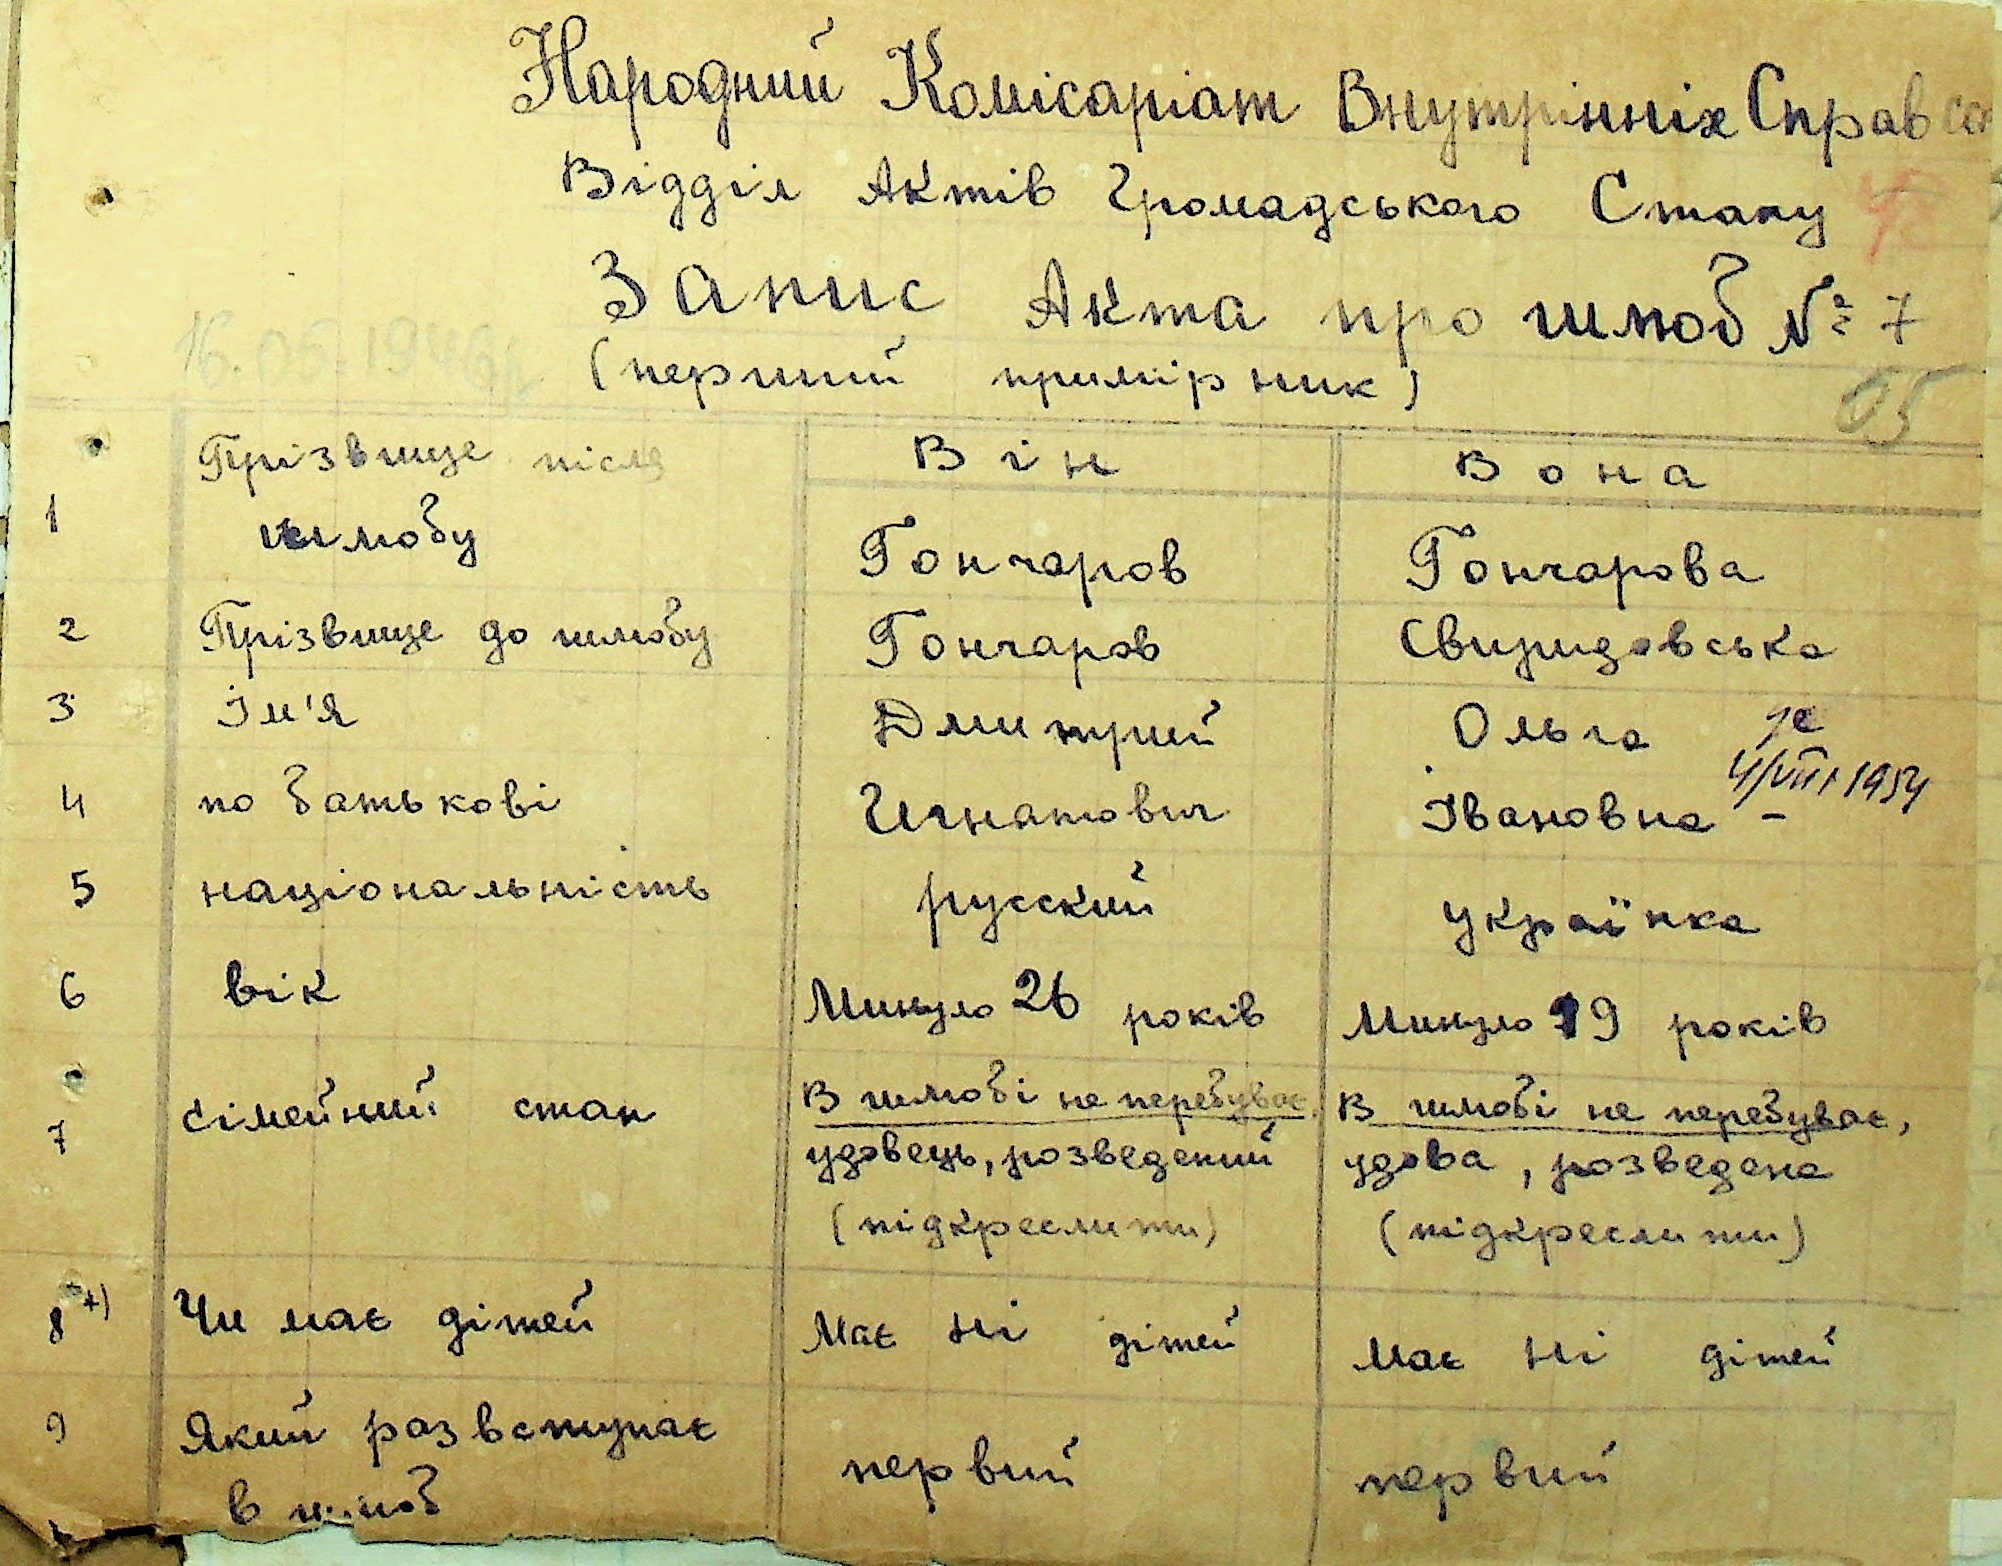 Народний Комісаріат Внутрінніх Справ
Відділ Актів Громадського Стану
Запис Акта про шлюб № 7
(перший примірник)
Прізвище після Він Вона
1 шлюбу Гончаров Гончарова
2 Прізвище до шлюбу Гончаров Свиридовська
3 Ім'я Дмитрий Ольга
4/VIII 1954
4 по батькові Игнатович Івановна –
5 національність русский українка
6 вік Минуло 26 років Минуло 19 років
В шлюбі не перебуває, В шлюбі не перебуває,
7 сімейний стан удовець, розведений удова, розведена
(підкреслити) (підкреслити)
8 +) Чи має дітей Має ні дітей Має ні дітей
9 Який раз вступає первий первий
в шлюб